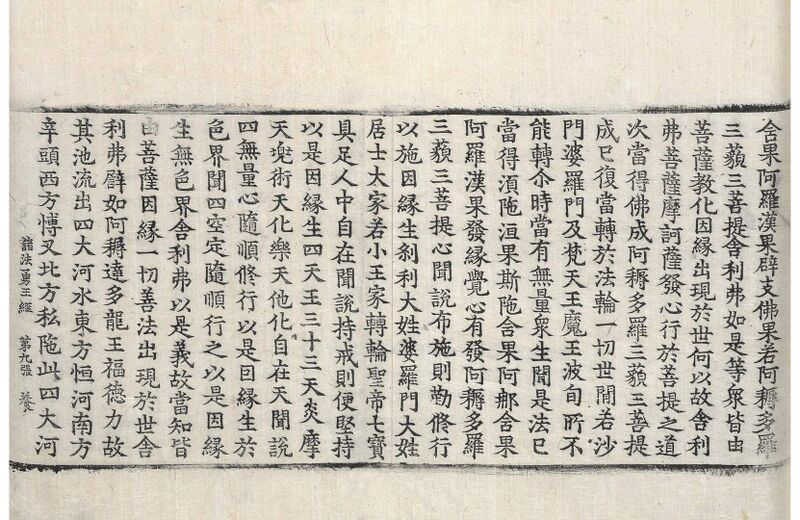 舎果阿羅漢果辟支佛果若阿耨多羅
三藐三菩提舎利弗如是等衆皆由
菩薩教化因緣出現於世何以故舎利
弗菩薩摩訶薩發心行於菩提之道
次當得佛成阿耨多羅三藐三菩提
成已復當轉於法輪一切世間若沙
門婆羅門及梵天王魔王波旬所不
能轉尒時當有無量衆生聞是法已
當得湏陁洹果斯陁舎果阿那舎果
阿羅漢果發緣覺心有發阿耨多羅
三藐三菩提心聞說布施則勤俢行
以施因緣生剎利大姓婆羅門大姓
居士大家若小王家轉輪聖帝七寶
具足人中自在聞說持戒則便堅持
以是因緣生四天王三十三天炎摩
天兠術天化樂天他化自在天聞說
四無量心隨順修行以是因緣生於
色界聞四空定隨順行之以是因緣
生無色界舎利弗以是義故當知皆
由菩薩因緣一切善法出現於世舎
利弗譬如阿耨達多龍王福德力故
其池流出四大河水東方恒河南方
辛頭西方愽叉北方私陁此四大河
諸法勇王經 第九張 養